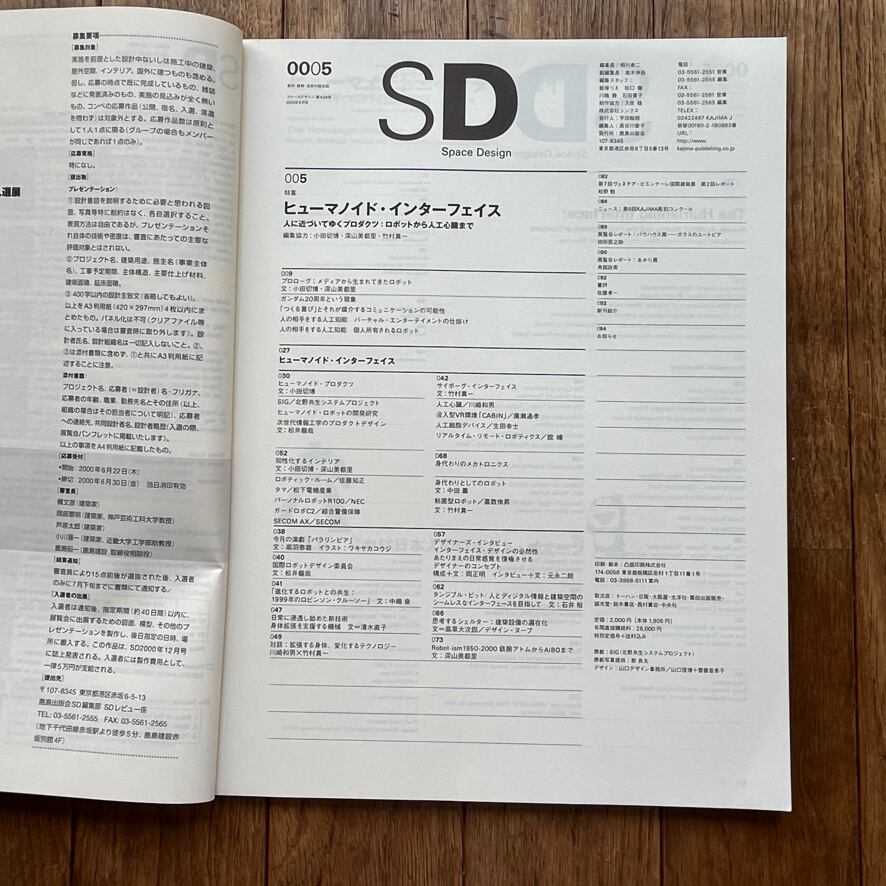 募集要項
[募集対象]
実施を前提とした設計中ないしは施工中の建築、
屋外空間、インテリア。国外に建つものも含める。
但し、応募の時点で既に完成しているもの、雑誌
などに発表済みのもの、実施の見込みが全く無い
もの、コンペの応募作品(公開、指名、入選、落選
を問わず)は対象外とする。応募作品数は原則と
して1人1点に限る(グループの場合もメンバー
が同じであれば1点のみ)。
[応募資格]
特になし。
[提出物]
プレゼンテーション:
①設計意図を説明するために必要と思われる図
面、写真等特に制約はなく、各自選択すること。
表現方法は自由であるが、プレゼンテーションそ
れ自体の技術や密度は、審査にあたっての主要な
評価対象とはされない。
②プロジェクト名、建築用途、施主名(事業主体
名)、工事予定期間、主体構造、主要仕上げ材料、
建築面積、延床面積。
③400字以内の設計主旨文(省略してもよい)。
以上をA3判用紙(420×297mm)4枚以内にま
とめたもの。パネル化は不可(クリアファイル等
に入っている場合は審査時に取り外します)。設
計者氏名、設計組織名は一切記入しないこと。②、
③は添付書類に含めず、①と共にA3判用紙に記
述することに注意。
添付書類:
プロジェクト名、応募者(=設計者)名・フリガナ、
応募者の年齢、職業、勤務先名とその住所(以上、
組織の場合はその担当者について明記)、応募者
への連絡先、共同設計者名、設計者略歴(入選の際、
展覧会パンフレットに掲載いたします)。
以上の事項をA4判用紙に記載したもの。
[応募受付]
・開始:2000年6月22日(木)
・締切:2000年6月30日(金) 当日消印有効
[審査員]
槇文彦(建築家)
岡部憲明(建築家、神戸芸術工科大学教授)
芦原太郎(建築家)
小川晋一(建築家、近畿大学工学部助教授)
鹿島昭一(鹿島建設 取締役相談役)
[結果通知]
審査員により15点前後が選抜された後、入選者
のみに7月下旬までに書類にて通知する。
[入選者の出展]
入選者は通知後、指定期間(約40日間)以内に、
展覧会に出展するための図面、模型、その他のプ
レゼンテーションを製作し、後日指定の日時、場
所に搬入する。この作品は、SD2000年12月号
に誌上発表される。入選者には製作費用として、
一律5万円が支給される。
[提出先]
〒107-8345 東京都港区赤坂6-5-13
鹿島出版会SD編集部 SDレビュー係
TEL:03-5561-2555 FAX:03-5561-2565
(地下鉄千代田線赤坂駅より徒歩5分、鹿島建設赤
坂別館4F)
選展
0005
SD
Space Design
編集長:相川幸二
編集スタッフ:
発行所:鹿島出版会
107-8345
東京都港区赤坂6丁目5番13号
電話:
03-5561-2551 営業
03-5561-2555 編集
FAX:
03-5561-2561 営業
03-5561-2565 編集
TELEX:
02422467 KAJIMA J
振替00160-2-180883番
URL:
http://www.
kajima-publishing.co.jp
005
特集
ヒューマノイド・インターフェイス
人に近づいてゆくプロダクツ:ロボットから人工心臓まで
編集協力:小田切博・深山美都里・竹村真一
009
プロローグ:メディアから生まれてきたロボット
文:小田切博・深山美都里
ガンダム20周年という現象
「つくる喜び」とそれが媒介するコミュニケーションの可能性
人の相手をする人工知能 バーチャル・エンターテイメントの仕掛け
人の相手をする人工知能 個人所有されるロボット
027
ヒューマノイド・インターフェイス
030
ヒューマノイド・プロダクツ
文:小田切博
SIG/北野共生システムプロジェクト
ヒューマノイド・ロボットの開発研究
次世代情報工学のプロダクトデザイン
文:松井龍哉
042
サイボーグ・インターフェイス
文=竹村真一
人工心臓/川崎和男
没入型VR環境「CABIN」/廣瀬通孝
人工細胞デバイス/生田幸士
リアルタイム・リモート・ロボティクス/舘 暲
052
知性化するインテリア
文:小田切博・深山美都里
ロボティック・ルーム/佐藤知正
タマ/松下電機産業
パーソナルロボットR100/NEC
ガードロボC2/綜合警備保障
SECOM AX/SECOM
068
身代わりのメカトロニクス
身代わりとしてのロボット
文:中田 薫
粘菌型ロボット/嘉数侑昇
文:竹村真一
038
今月の演劇「パラリンピア」
文=高羽泰雄 イラスト:ワキサカコウジ
040
国際ロボットデザイン委員会
文:松井龍哉
041
「進化するロボットとの共生:
1999年のロビンソン・クルーソー」 文=中嶋 泉
047
日常に浸透し始めた新技術
身体拡張を支援する機械 文=清水直子
049
対談:拡張する身体、変化するテクノロジー
川崎和男×竹村真一
057
デザイナーズ・インタビュー
インターフェイス・デザインの必然性
あたりまえの日常感覚を復権させる
デザイナーのコンセプト
構成十文:岡正明 インタビュー十文:元永二朗
062
タンジブル・ビット:人とディジタル情報と建築空間の
シームレスなインターフェイスを目指して 文:石井 裕
066
思考するシェルター:建築設備の遍在化
文=高草大次郎/デザイン・ヌーブ
073
Robot-ism1950-2000 鉄腕アトムからAIBOまで
文:深山美都里
082
第7回ヴェネチア・ビエンナーレ国際建築展 第2回レポート
松野 勉
088
ニュース:第6回KAJIMA彫刻コンクール
089
展覧会レポート:バウハウス展――ガラスのユートピア
田所辰之助
090
展覧会レポート:あかり展
角舘政英
092
書評
佐藤考一
093
新刊紹介
094
お知らせ
印刷・製本:凸版印刷株式会社
174-0056 東京都板橋区志村1丁目11番1号
電話:03-3968-5111 案内
取次店:トーハン・日販・大阪屋・太洋社・栗田出版販売・
誠光堂・鈴木書店・西村書店・中央社
定価:2,000円[本体1,905円]
年間直接購読料:26,000円
特別定価号+送料込み
表紙:SIG(北野共生システムプロジェクト)
表紙写真提供:鄭 良太